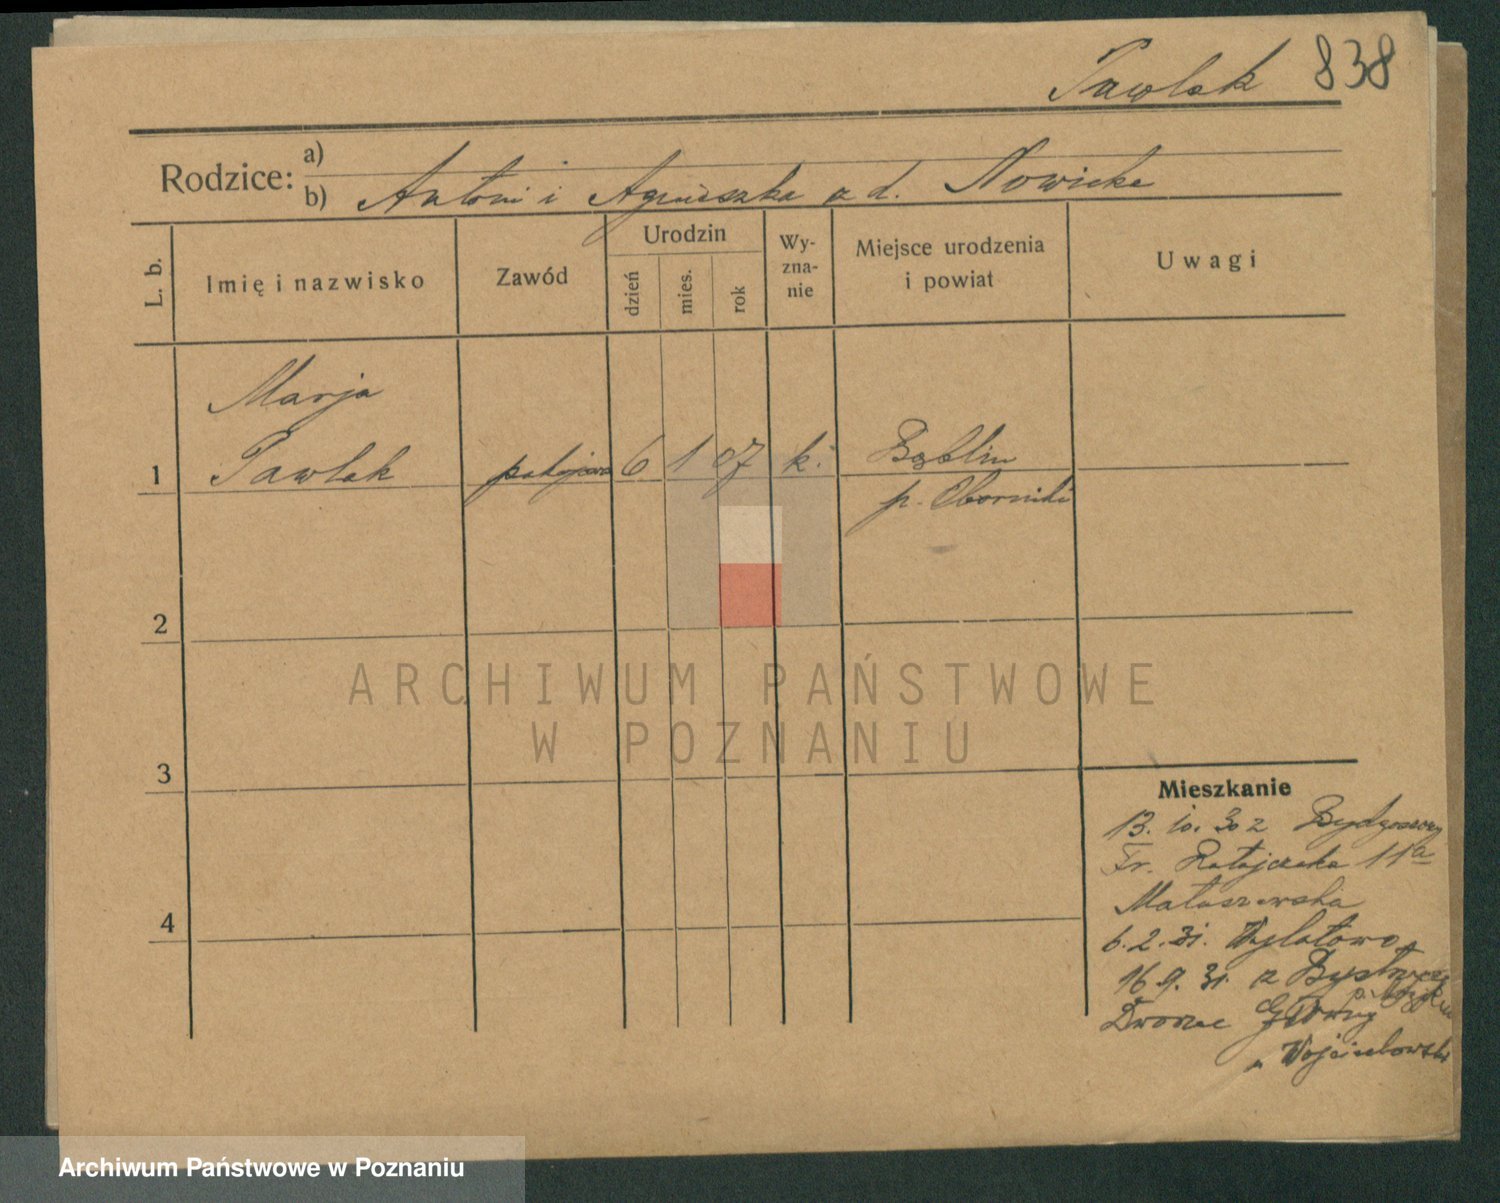 Pawlak 838
Rodzice: a)
b) Antoni i Agnieszka z d. Nowicka
L. b.
Imię i nazwisko
Zawód
Urodzin
dzień
mies.
rok
Wy-
zna-
nie
Miejsce urodzenia
i powiat
Uwagi
Marja
1 Pawlak pokojowa 6 1 07 k. Bąblin
p. Oborniki
2
ARCHIWUM PAŃSTWOWE
W POZNANIU
3
Mieszkanie
13. 10. 30 z Bydgoszczy
Fr. Ratajczaka 11a
Mataszewska
4
6. 2. 31.
16. 9. 31. z
Dworzec Główny
Wojciechowski
Archiwum Państwowe w Poznaniu